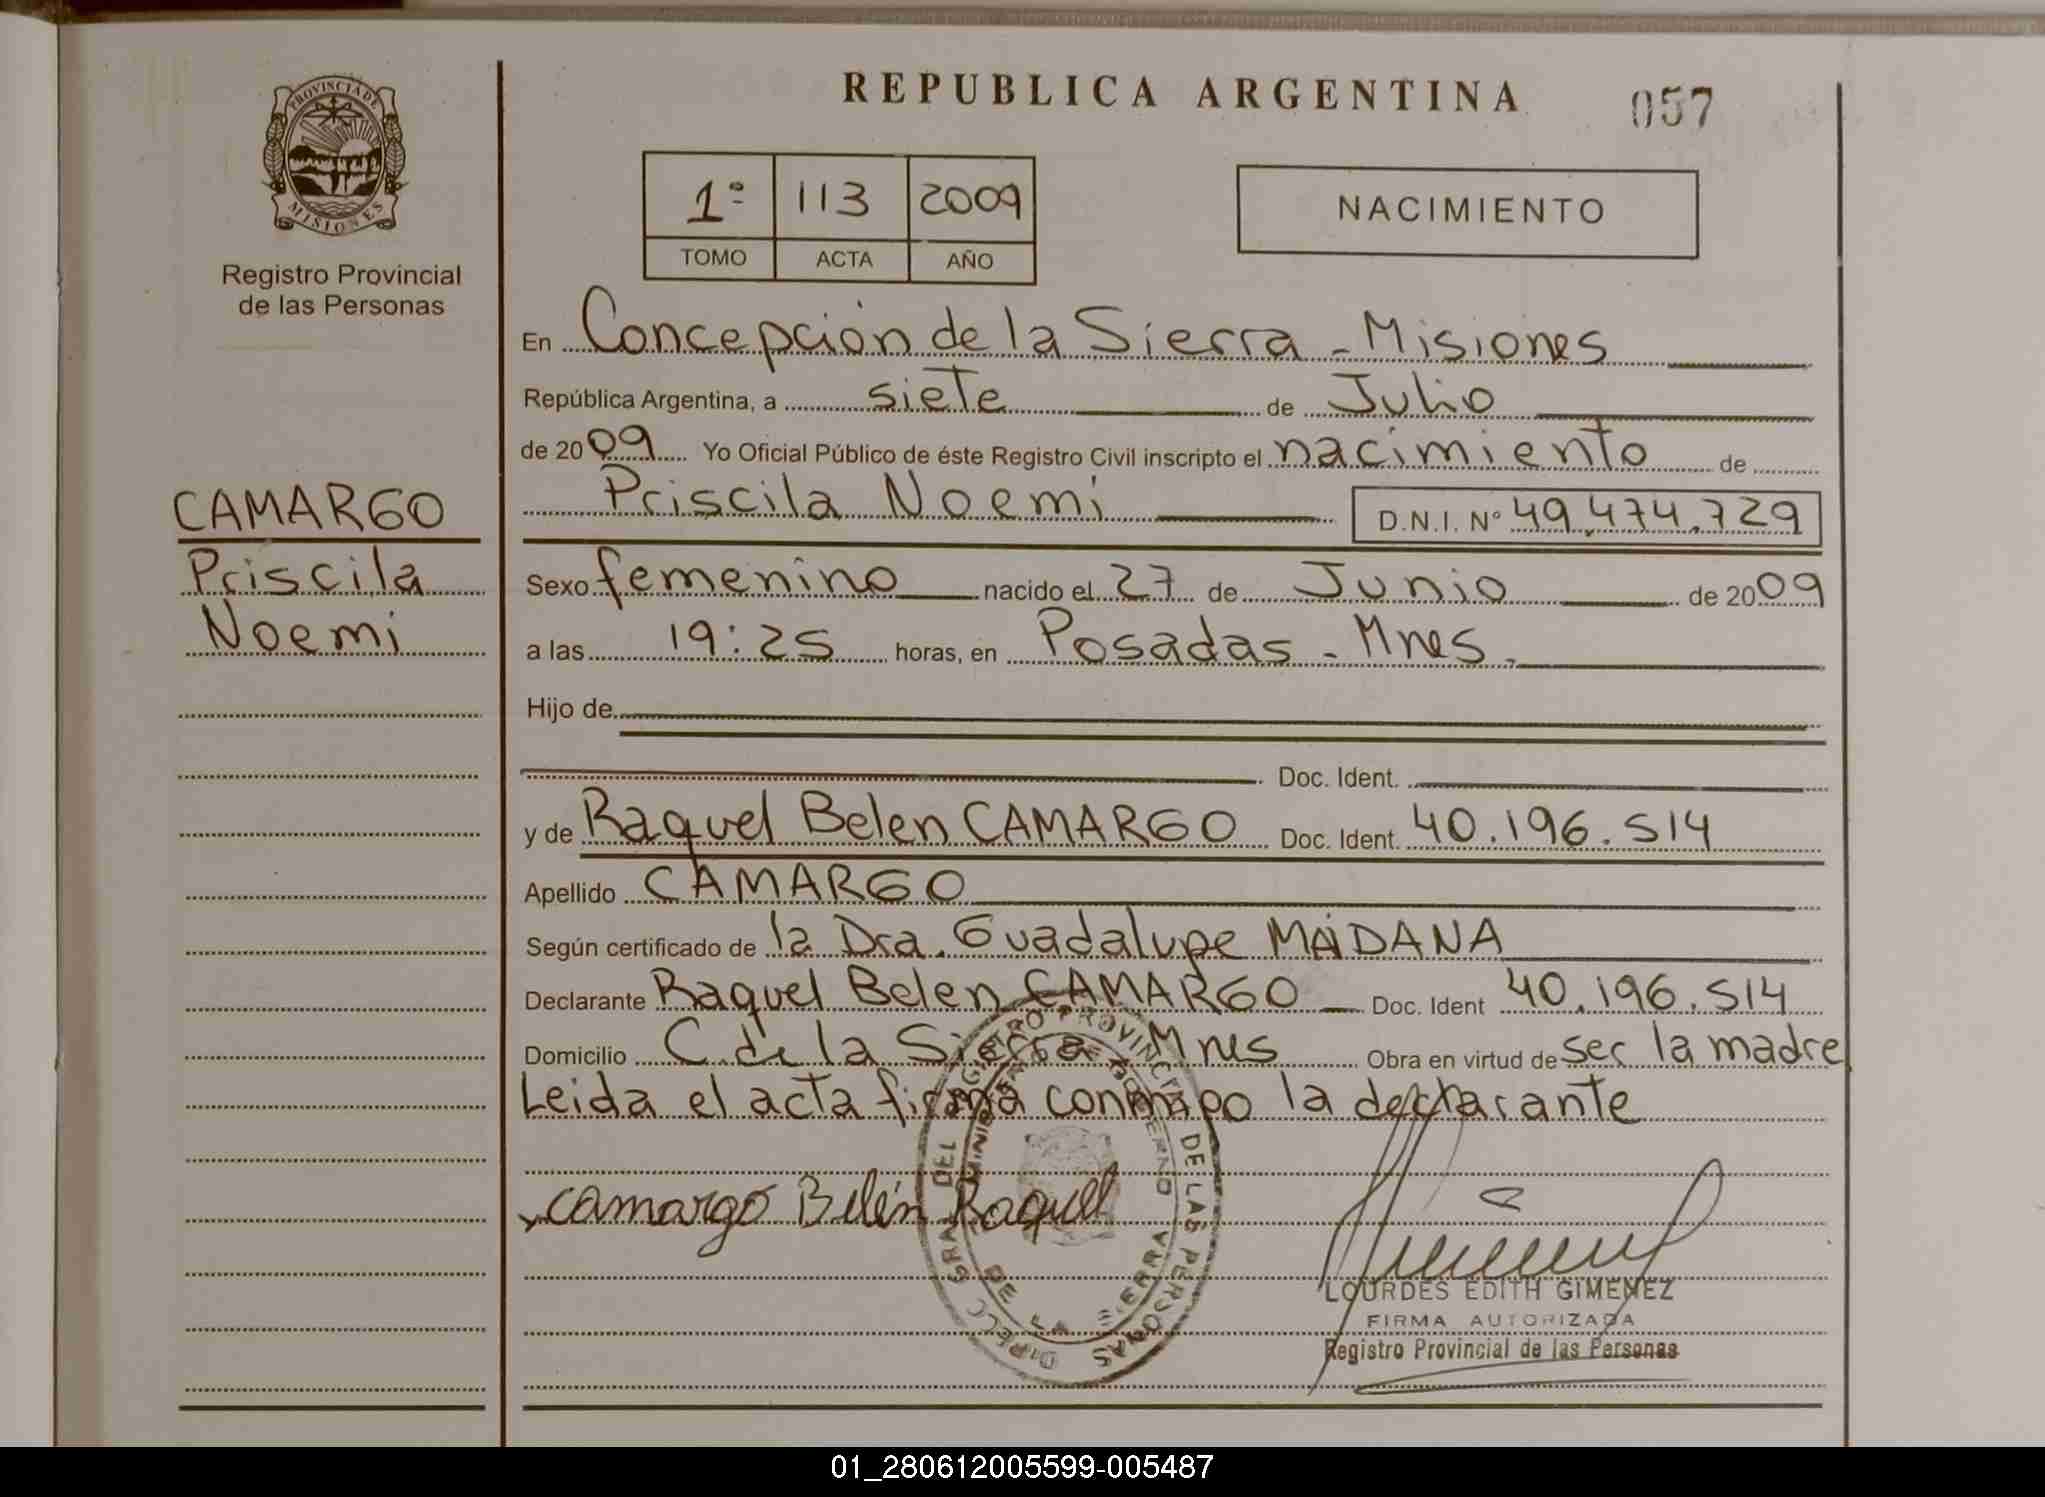 PROVINCIA DE
MISIONES
Registro Provincial
de las Personas
CAMARGO
Priscila
Noemi
REPUBLICA ARGENTINA
057
1º 113 2009
TOMO ACTA AÑO
NACIMIENTO
En Concepción de la Sierra - Misiones
República Argentina, a siete de Julio
de 2009 Yo Oficial Público de éste Registro Civil inscripto el nacimiento de
Priscila Noemi D.N.I. Nº 49.474.729
Sexo femenino nacido el 27 de Junio de 2009
a las 19:25 horas, en Posadas - Mnes.
Hijo de
Doc. Ident.
y de Raquel Belen CAMARGO Doc. Ident. 40.196.514
Apellido CAMARGO
Según certificado de la Dra. Guadalupe MAIDANA
Declarante Raquel Belen CAMARGO Doc. Ident 40.196.514
Domicilio C. de la Sierra Mnes Obra en virtud de ser la madre
Leida el acta firma conmigo la declarante
camargo Belén Raquel
REGISTRO PROVINCIAL DE LAS PERSONAS
MINISTERIO DE GOBIERNO
LOURDES EDITH GIMENEZ
FIRMA AUTORIZADA
Registro Provincial de las Personas
01_280612005599-005487